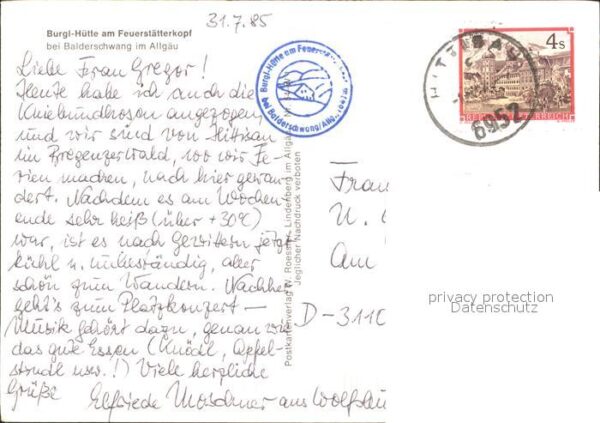 31.7.85
Burgl-Hütte am Feuerstätterkopf
bei Balderschwang im Allgäu
Liebe Frau Gregor!
Heute habe ich auch die
Kniebundhosen angezogen,
und wir sind von Hittisau
im Bregenzerwald, wo wir Fe-
rien machen, nach hier gewan-
dert. Nachdem es am Wochen-
ende sehr heiß (über +30°C)
war, ist es nach Gewittern jetzt
kühl u. unbeständig, aber
schön zum Wandern. Nachher
geht's zum Platzkonzert –
Musik gehört dazu, genau wie
das gute Essen (Knödl, Apfel-
strudl usw.!) Viele herzliche
Grüße Elfriede Moschner aus Wolfsbu
Burgl-Hütte am Feuerst
bei Balderschwang/Allg.
Postkartenverlag W. Roessler, Lindenberg im Allgäu
Jeglicher Nachdruck verboten
4s
REPUBLIK ÖSTERREICH
HITTISAU
6952
Frau
U.
Am
D-3110
privacy protection
Datenschutz